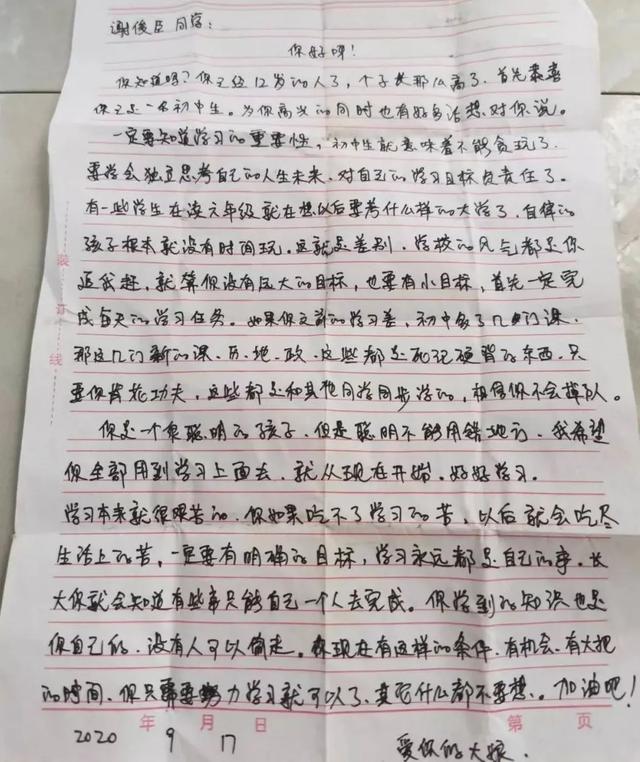 谢俊臣同学:
你好呀!
你知道吗?你已经12岁的人了,个子也那么高了。首先恭喜
你已是一名初中生。为你高兴的同时也有好多话想对你说。
一定要知道学习的重要性,初中生就意味着不能贪玩了。
要学会独立思考自己的人生未来,对自己的学习目标负责任了。
有一些学生在读六年级就在想以后要考什么样的大学了,自律的
孩子根本就没有时间玩。这就是差别,学校的风气都是你
追我赶,就算你没有巨大的目标,也要有小目标,首先一定完
成每天的学习任务。如果你之前的学习差,初中多了几门课,
那这几门新的课、历、地、政、这些都是死记硬背的东西,只
要你肯花功夫,这些都是和其他同学同步学的,相信你不会掉队。
你是一个很聪明的孩子,但是聪明不能用错地方,我希望
你全部用到学习上面去,就从现在开始,好好学习。
学习本来就很艰苦的,你如果吃不了学习的苦,以后就会吃尽
生活上的苦,一定要有明确的目标,学习永远都是自己的事,长
大你就会知道有些事只能自己一个人去完成。你学到的知识也是
你自己的,没有人可以偷走。你现在有这样的条件、有机会、有大把
的时间、你只需要努力学习就可以了、其它什么都不要想。加油吧!
2020年9月17日 第 页
爱你的大娘.
装订线